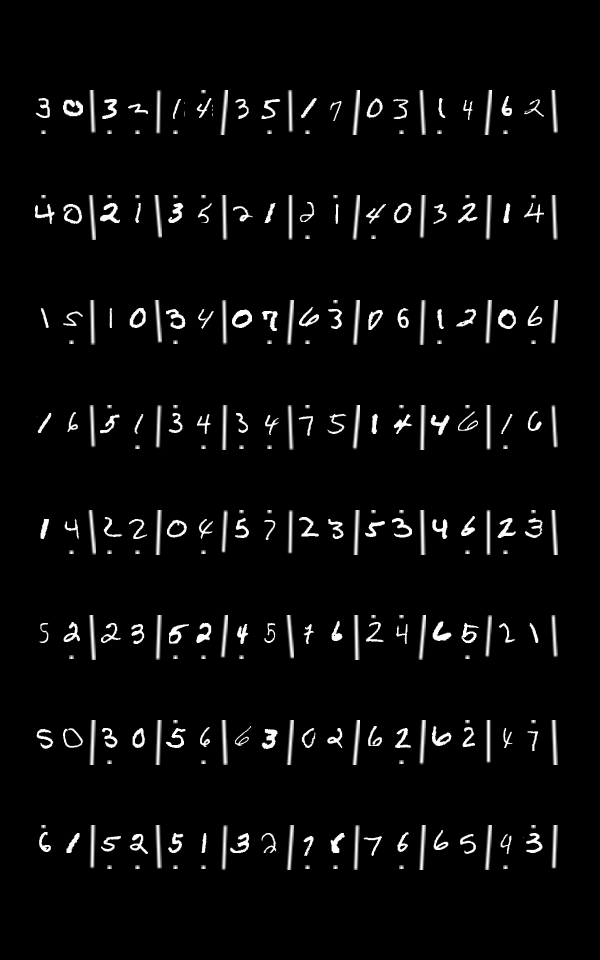 3 0 | 3 2 | 1 4 | 3 5 | 1 7 | 0 3 | 1 4 | 6 2 |
4 0 | 2 1 | 3 5 | 2 1 | 2 1 | 4 0 | 3 2 | 1 4 |
1 5 | 1 0 | 3 4 | 0 7 | 6 3 | 0 6 | 1 2 | 0 6 |
1 6 | 5 1 | 3 4 | 3 4 | 7 5 | 1 4 | 4 6 | 1 6 |
1 4 | 2 2 | 0 4 | 5 7 | 2 3 | 5 3 | 4 6 | 2 3 |
5 2 | 2 3 | 5 2 | 4 5 | 7 6 | 2 4 | 6 5 | 2 1 |
5 0 | 3 0 | 5 6 | 6 3 | 0 2 | 6 2 | 6 2 | 4 7 |
6 1 | 5 2 | 5 1 | 3 2 | 7 | 7 6 | 6 5 | 4 3 |